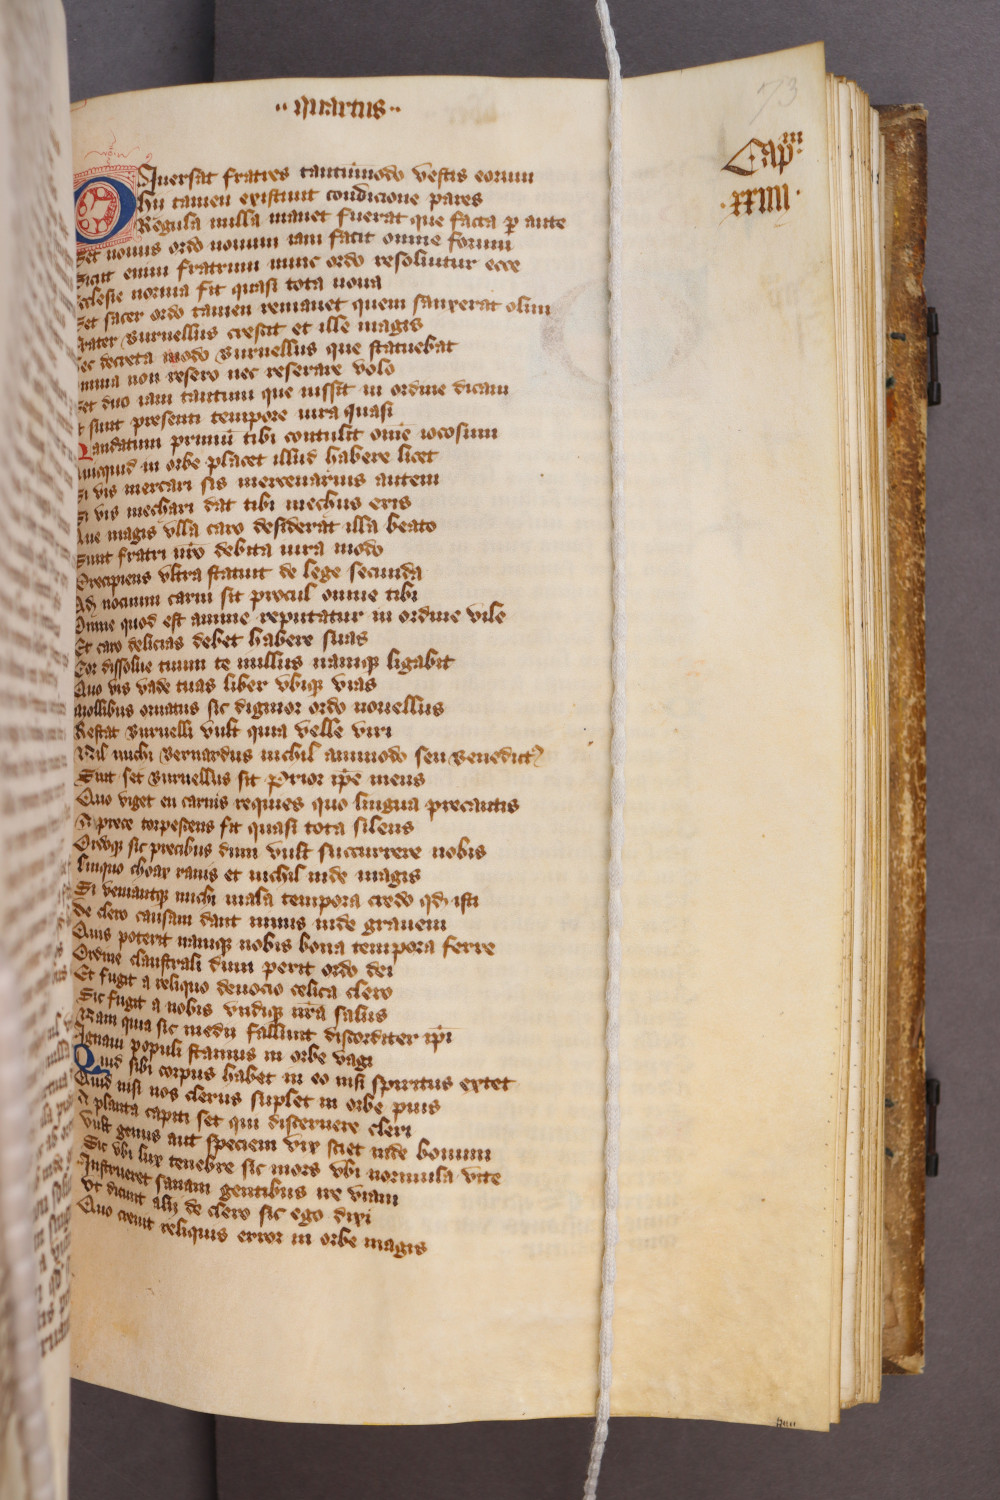 ·· quartus ··
73
Cap^m
·xxiiii·
Diuersat fratres tantummodo vestis eorum
hii tamen existunt condicione pares
Regula nulla manet fuerat que facta per ante
Set nouus ordo nouum iam facit omne forum
Sicut enim fratrum nunc ordo resoluitur ecce
Ecclesie norma fit quasi tota noua
Set sacer ordo tamen remanet quem sanxerat olim
ffrater Burnellus crescit et ille magis
Hec decreta modo Burnellus que statuebat
Omnia non resero nec reserare volo
Set duo iam tantum que iussit in ordine dicam
Et sunt presenti tempore iura quasi
Mandatum primum tibi contulit omne iocosum
Quicquid in orbe placet illud habere licet
Si vis mercari sis mercenarius autem
Si vis mechari dat tibi mechus eris
Que magis vlla caro desiderat illa beato
Sunt fratri nostro debita iura modo
Precipiens vltra statuit de lege secunda
Ad nocuum carni sit procul omne tibi
Omne quod est anime reputatur in ordine vile
Et caro delicias debet habere suas
Cor dissolue tuum te nullus namque ligabit
Quo vis vade tuas liber vbique vias
Mollibus ornatus sic dignior ordo nouellus
Restat Burnelli vult quia velle viri
Nil michi Bernardus nichil ammodo seu Benedictus
Sint set Burnellus sit Prior ipse meus
Quo viget en carnis requies quo lingua precantis
A prece torpescens fit quasi tota silens
Ordoque sic precibus dum vult succurrere nobis
Linquo choax ranis et nichil inde magis
Si veniantque michi mala tempora credo quod isti
De clero causam dant minus inde grauem
Quis poterit namque nobis bona tempora ferre
Ordine claustrali dum perit ordo dei
Et fugit a reliquo deuocio celica clero
Sic fugit a nobis vndique nostra salus
Nam quia sic medii fallunt discorditer ipsi
Ignaui populi stamus in orbe vagi
Quid sibi corpus habet in eo nisi spiritus extet
Quid nisi nos clerus suplet in orbe pius
A planta capiti set qui discernere cleri
Vult genus aut speciem vix sciet inde bonum
Sic vbi lux tenebre sic mors vbi normula vite
Instrueret sanam gentibus ire viam
Vt dicunt alii de clero sic ego dixi
Quo creuit reliquis error in orbe magis